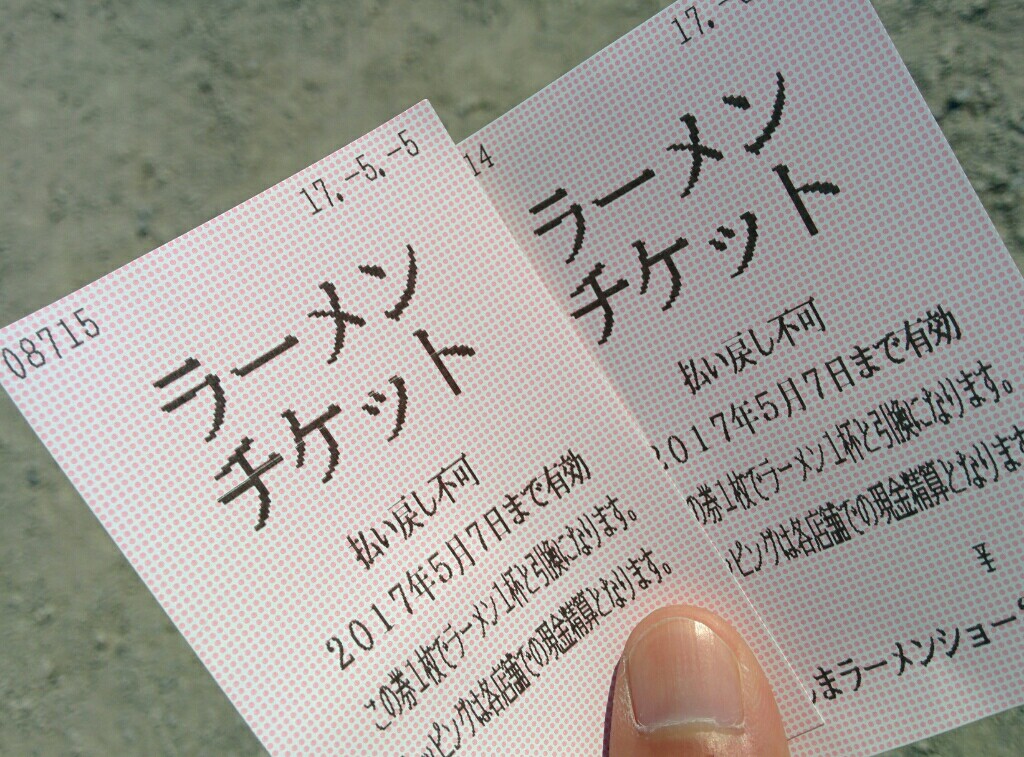 17.-5.-5
08715
ラーメン
チケット
払い戻し不可
2017年5月7日まで有効
この券1枚でラーメン1杯と引換になります。
ッピングは各店舗での現金精算となります。
17.-
14
ラーメン
チケット
払い戻し不可
2017年5月7日まで有効
の券1枚でラーメン1杯と引換になります。
ピングは各店舗での現金精算となります
¥
まラーメンショー